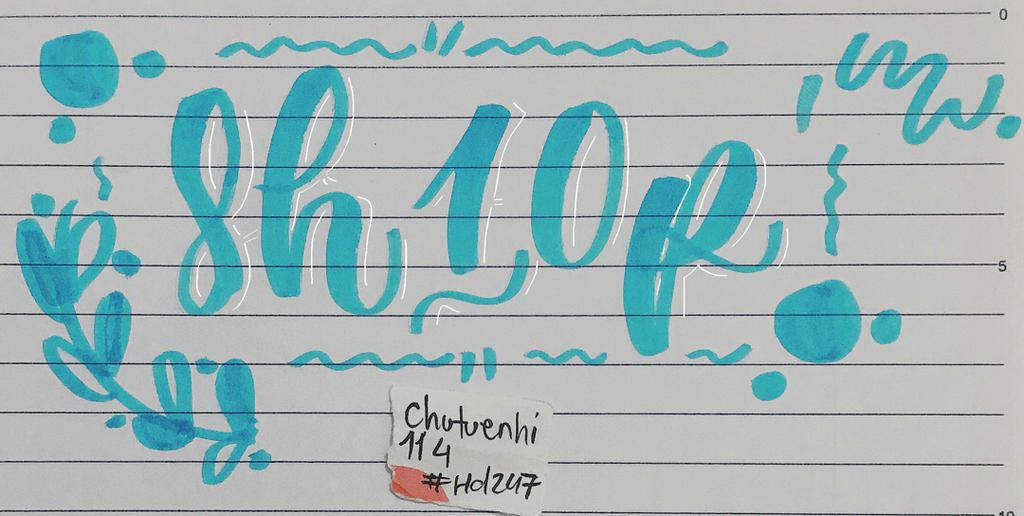 0
8h10p
5
Chutuenhi
114
#Hd247
10